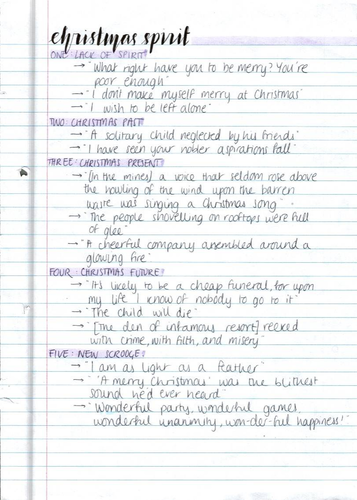 christmas spirit
ONE: LACK OF SPIRIT
→ "What right have you to be merry? You're
poor enough"
→ "I don't make myself merry at Christmas"
→ "I wish to be left alone"
TWO: CHRISTMAS PAST
→ "A solitary child neglected by his friends"
→ "I have seen your nobler aspirations fall"
THREE: CHRISTMAS PRESENT
→ "(In the mines) a voice that seldom rose above
the howling of the wind upon the barren
waste was singing a Christmas song"
→ "The people shovelling on rooftops were full
of glee"
→ "A cheerful company assembled around a
glowing fire"
FOUR: CHRISTMAS FUTURE:
→ "It's likely to be a cheap funeral, for upon
my life I know of nobody to go to it"
→ "The child will die"
→ "[The den of infamous resort] reeked
with crime, with filth, and misery"
FIVE: NEW SCROOGE:
→ "I am as light as a feather"
→ "'A merry Christmas' was the blithest
sound he'd ever heard"
→ "Wonderful party, wonderful games,
wonderful unanimity, won-der-ful happiness!"